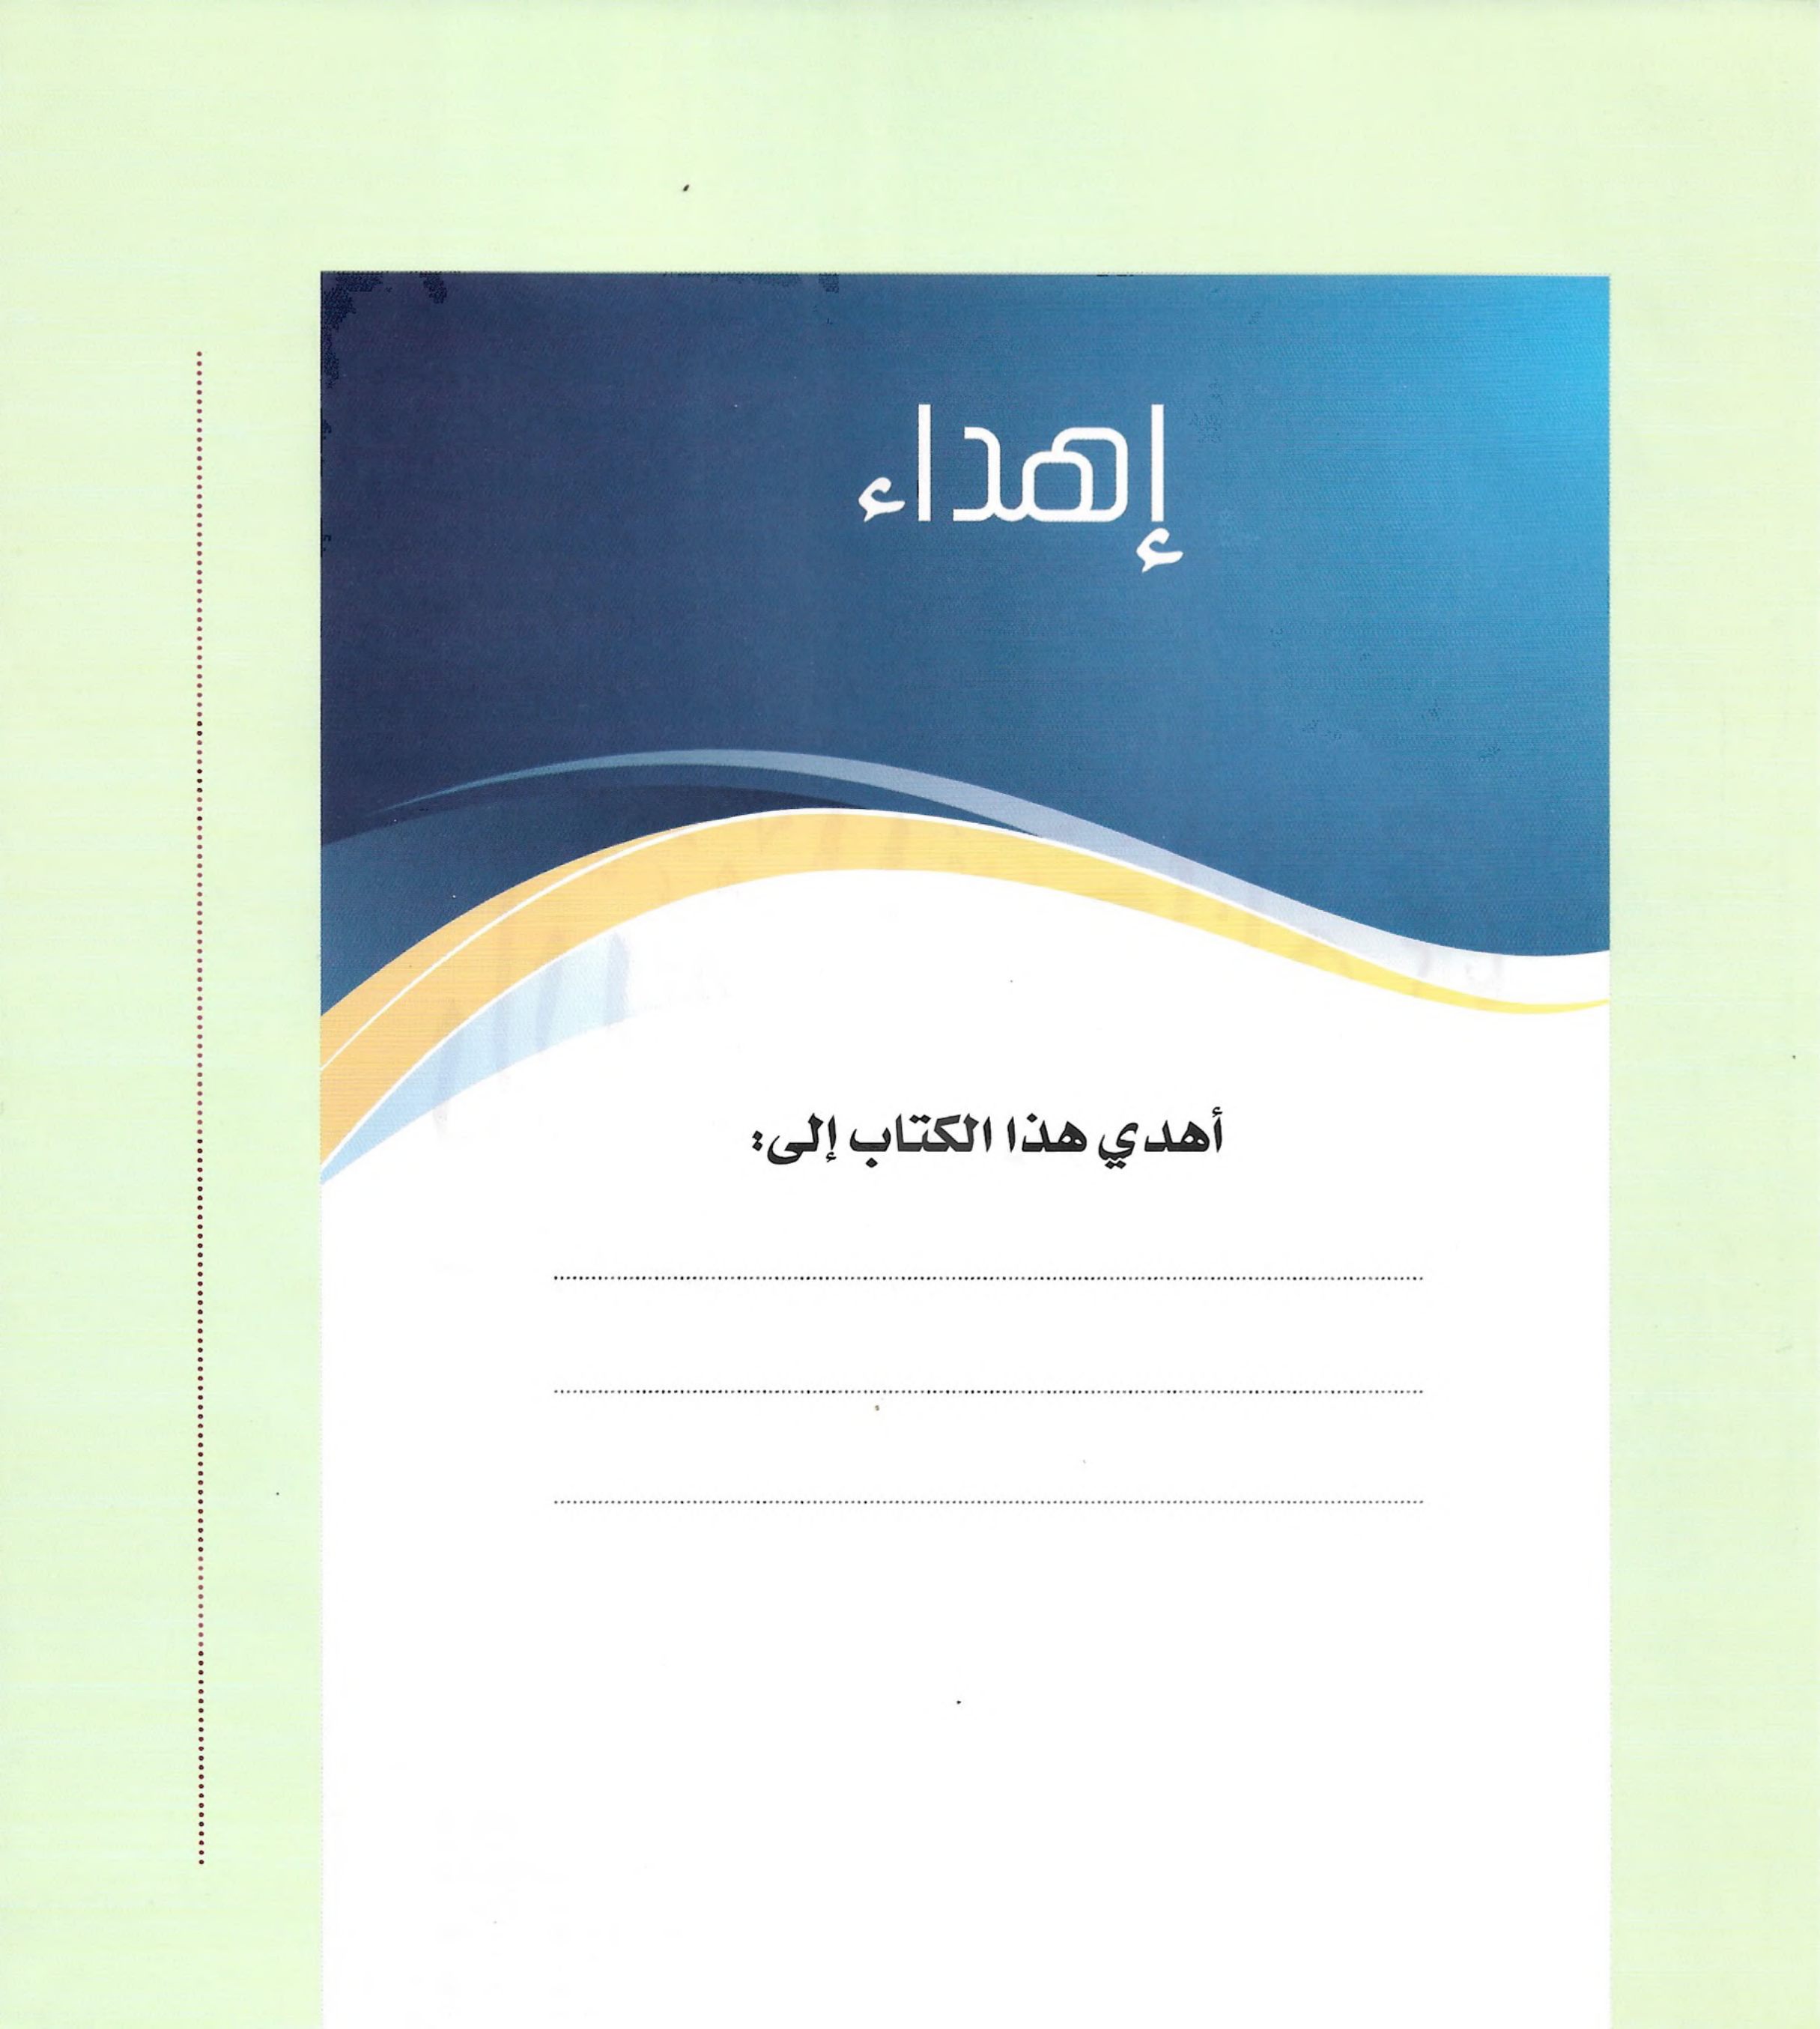 إهداء
أهدي هذا الكتاب إلى: